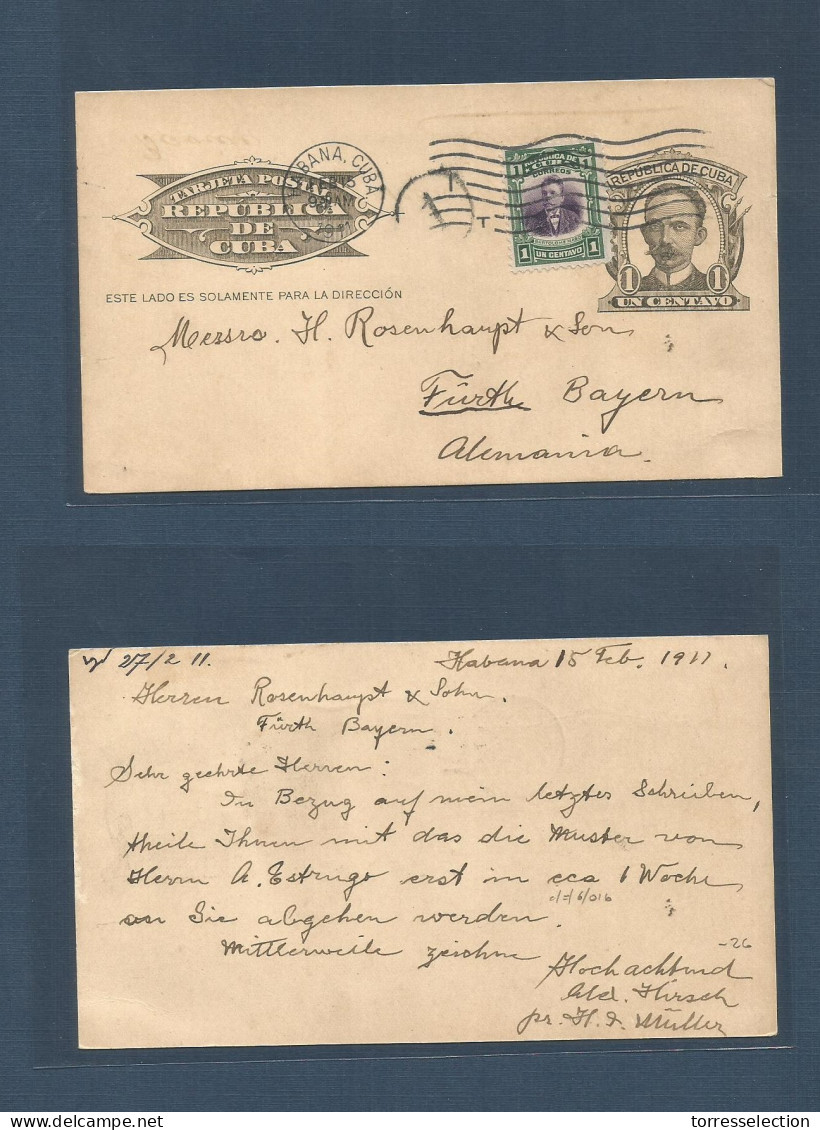 HABANA, CUBA
TARJETA POSTAL
REPUBLICA
DE
CUBA
T
T
1 REPUBLICA DE CUBA 1
CORREOS
1 UN CENTAVO 1
REPUBLICA DE CUBA
1 1
UN CENTAVO
ESTE LADO ES SOLAMENTE PARA LA DIRECCIÓN
Messrs. H. Rosenhaupt & Son
Fürth Bayern
Alemania.
27/2 11.
Habana 15 Feb. 1911.
Herren Rosenhaupt & Sohn.
Fürth Bayern.
Sehr geehrte Herren:
In Bezug auf mein letztes Schreiben,
theile Ihnen mit das die Muster von
Herrn A. Estrugo erst in cca 1 Woche
an Sie abgehen werden.
Mittlerweile zeichne
-26
Hochachtend
Hirsch
pr. H. J. Müller
torresselection